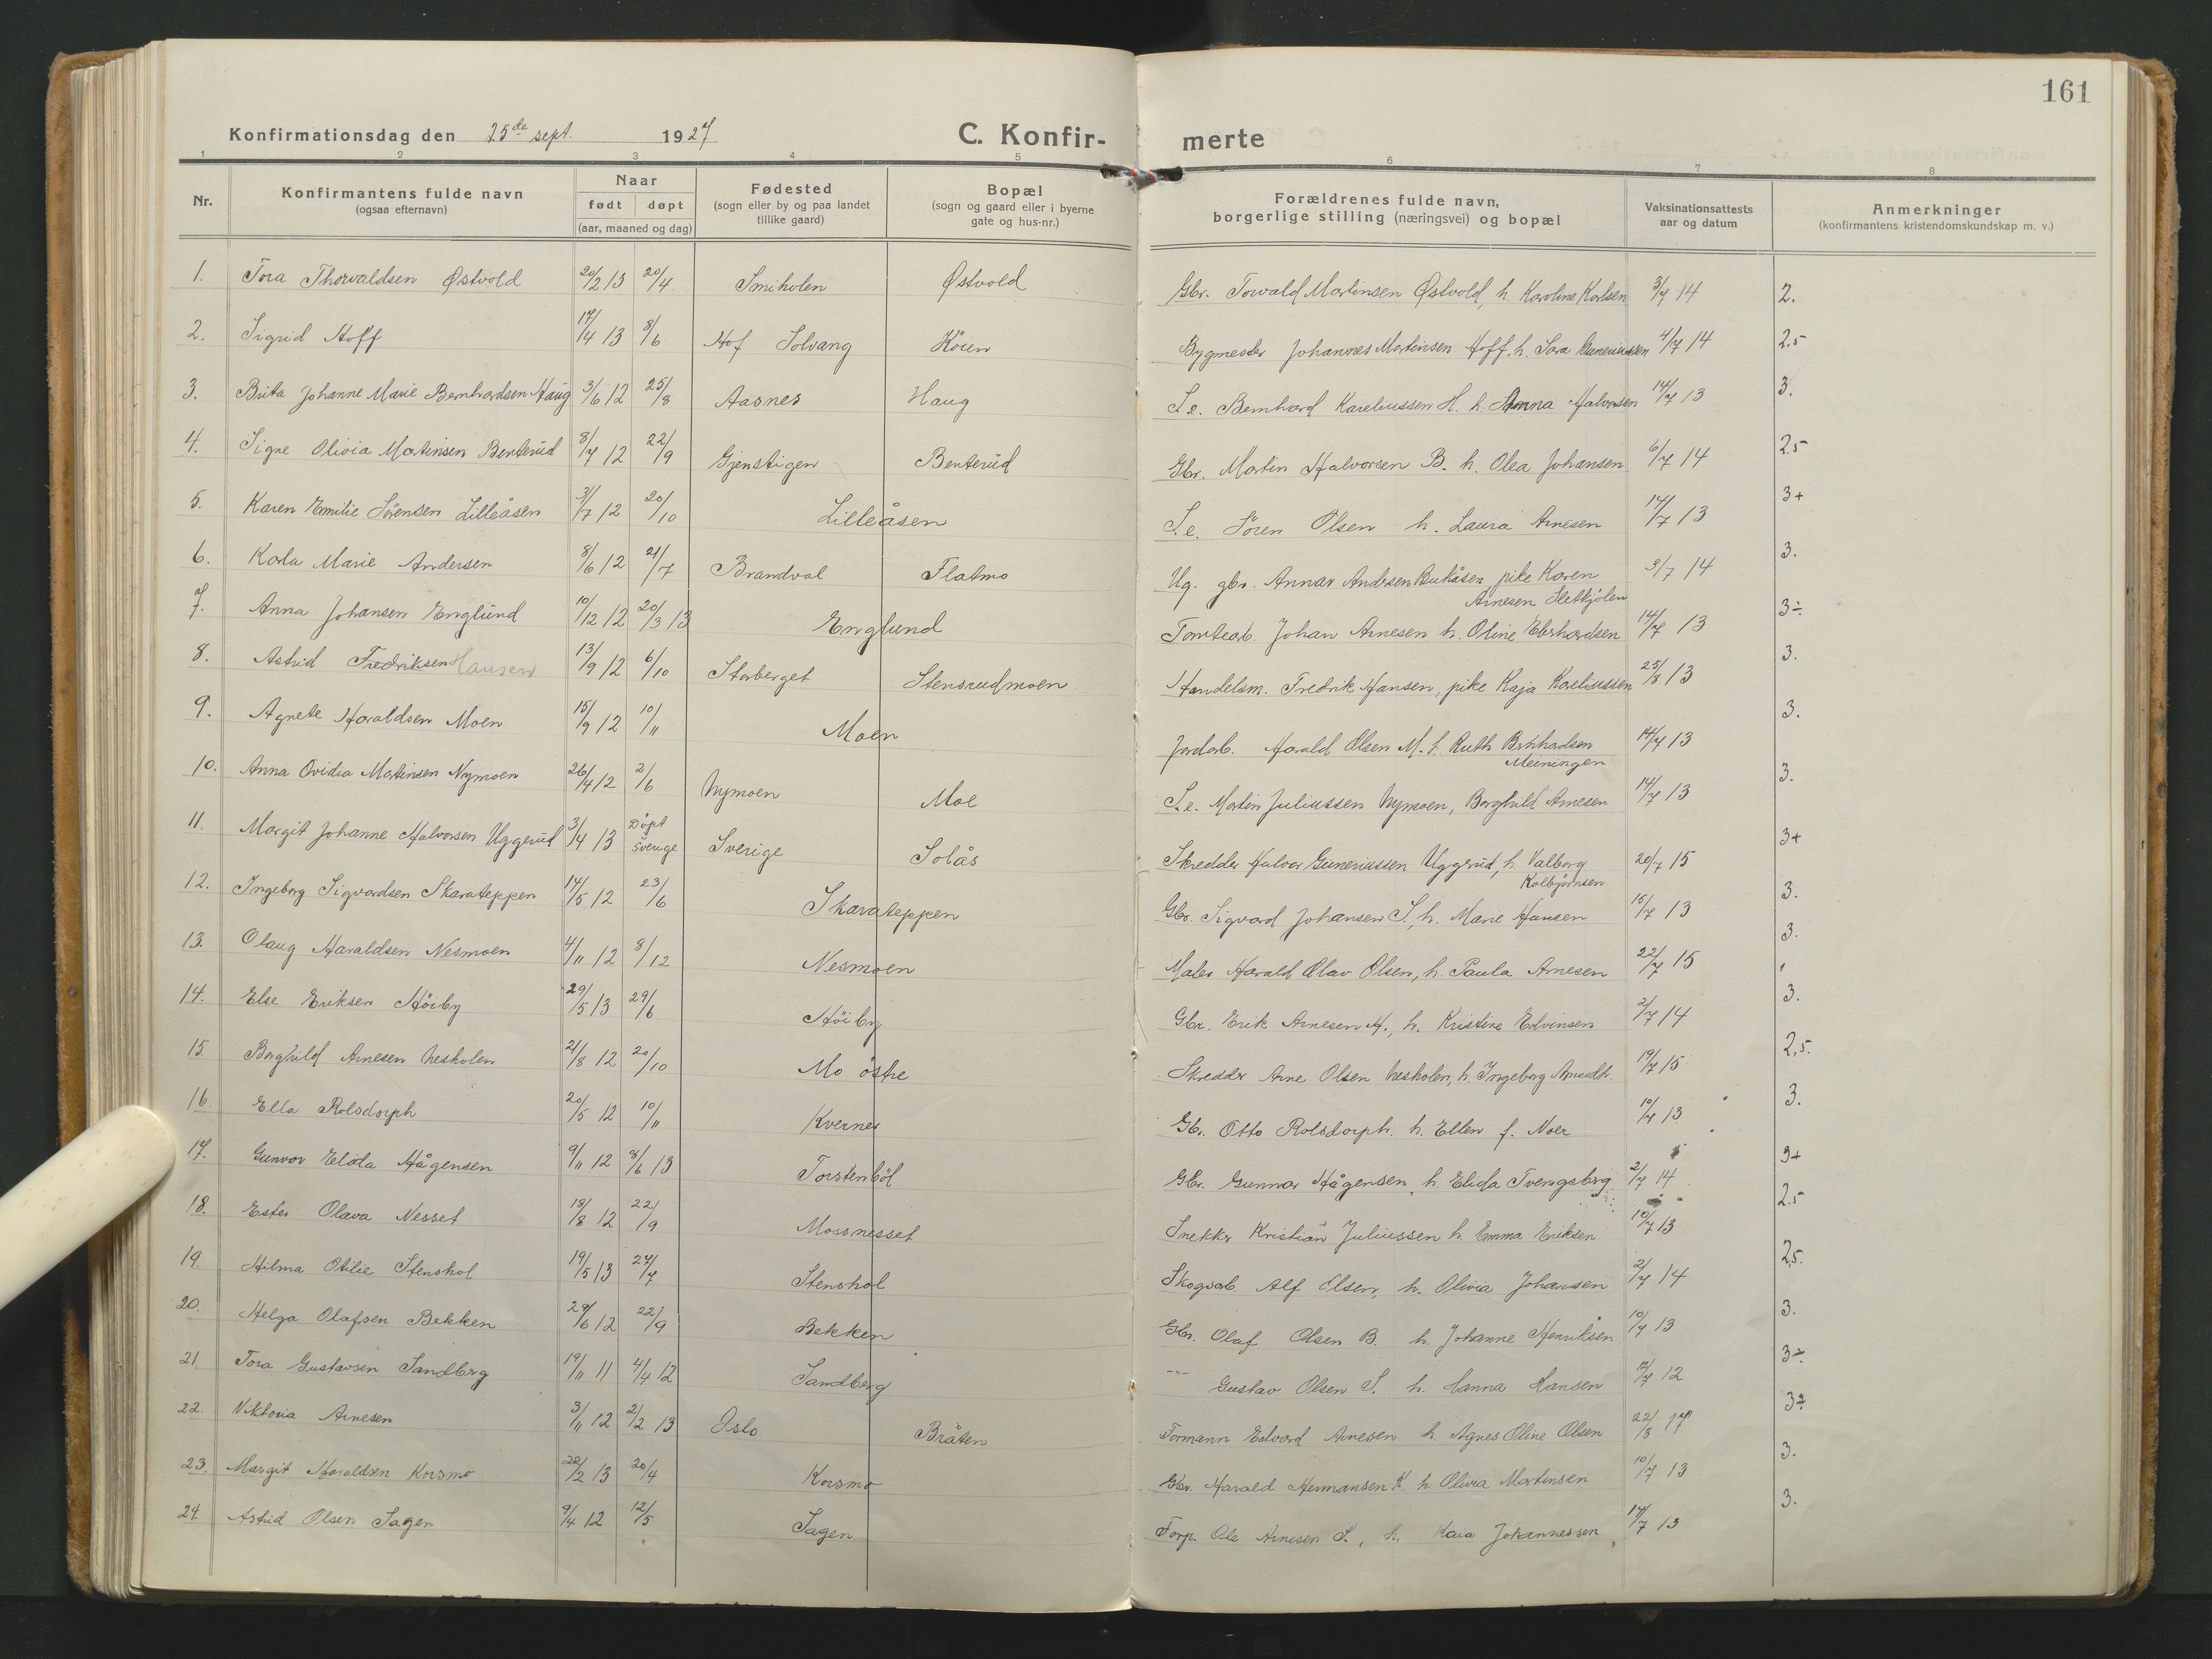 161
Konfirmationsdag den 25de sept. 1927 C. Konfir- merte
1 2 3 4 5 6 7 8
Nr. Konfirmantens fulde navn (ogsaa efternavn) Naar født døpt (aar, maaned og dag) Fødested (sogn eller by og paa landet tillike gaard) Bopæl (sogn og gaard eller i byerne gate og hus-nr.) Forældrenes fulde navn, borgerlige stilling (næringsvei) og bopæl Vaksinationsattests aar og datum Anmerkninger (konfirmantens kristendomskundskap m. v.)
1. Tora Thorvaldsen Østvold 20/2 13 20/4 Smiholen Østvold Gbr. Torvald Martinsen Østvold, h. Karoline Karlsen 3/7 14 2.
2. Sigrid Hoff 17/4 13 8/6 Hof Solvang Köien Bygmester Johannes Martinsen Hoff. h. Sara Guneriussen 4/7 14 2.5
3. Brita Johanne Marie Bernhardsen Haug 3/6 12 25/8 Aasnes Haug S.e. Bernhard Kareliussen H. h. Anna Halvorsen 14/7 13 3.
4. Signe Olivia Martinsen Benterud 8/7 12 22/9 Gjenstigen Benterud Gbr. Martin Halvorsen B. h. Olea Johansen 6/7 14 2.5
5. Karen Emilie Sörensen Lilleåsen 31/7 12 20/10 Lilleåsen S.e. Sören Olsen h. Laura Arnesen 14/7 13 3+
6. Karla Marie Andersen 8/6 12 21/7 Brandval Flatmo Ug. gbr. Annar Andersen Bukåsen, pike Karen 9/7 14 3.
Arnesen Sletkjölen
7. Anna Johansen Englund 10/12 12 20/3 13 Englund Tomtearb. Johan Arnesen h. Oline Eberhardsen 14/7 13 3÷
8. Astrid Fredriksen Hansen 13/9 12 6/10 Storberget Stensrudmoen Handelsm. Fredrik Hansen, pike Kaja Kareliussen 25/8 13 3.
9. Agnete Haraldsen Moen 15/9 12 10/11 Moen Jordarb. Harald Olsen M. h. Ruth Bernhardsen 14/7 13 3.
Meiningen
10. Anna Ovidia Martinsen Nymoen 26/4 12 2/6 Nymoen Moe S.e. Martin Juliussen Nymoen, Borghild Arnesen 14/7 13 3.
11. Margit Johanne Halvorsen Uggerud 3/4 13 Döpt Sverige Sverige Solås Skredder Halvor Guneriussen Uggerud, h. Valborg 20/7 15 3+
Kolbjörnsen
12. Ingeborg Sigvardsen Skarateppen 14/5 12 23/6 Skarateppen Gbr. Sigvard Johansen S., h. Marie Hansen 15/7 13 3.
13. Olaug Haraldsen Nesmoen 4/11 12 8/12 Nesmoen Maler Harald Olav Olsen, h. Paula Arnesen 22/7 15 3.
14. Else Eriksen Höiby 29/5 13 29/6 Höiby Gbr. Erik Arnesen H., h. Kristine Edvinsen 2/7 14 3.
15. Borghild Arnesen Nesholen 21/8 12 20/10 Mo östre Skredder Arne Olsen Nesholen, h. Ingeborg Arnedtr. 19/7 15 2,5.
16. Ella Rolsdorph 20/5 12 10/11 Kvernes Gbr. Otto Rolsdorph. h. Ellen f. Noer 10/7 13 3.
17. Gunvor Elida Hågensen 9/11 12 8/6 13 Torstenböl Gbr. Gunnar Hågensen, h. Elida Tvengsberg 2/7 14 3+
18. Ester Olava Nesset 18/8 12 22/9 Mossnesset Snekker Kristian Juliussen h. Emma Eriksen 10/7 13 2.5
19. Hilma Otilie Stenshol 19/5 13 27/7 Stenshol Skogsarb. Alf Olsen, h. Olivia Johansen 2/7 14 2.5.
20. Helga Olafsen Bekken 29/6 12 22/9 Bekken Gbr. Olaf Olsen B. h. Johanne Henriksen 10/7 13 3.
21. Tora Gustavsen Sandberg 19/11 11 4/4 12 Sandberg -"- Gustav Olsen S. h. Hanna Hansen 12/7 12 3÷
22. Viktoria Arnesen 3/11 12 2/2 13 Oslo Bråten Formann Edvard Arnesen h. Agnes Oline Olsen 22/8 17 3÷
23. Margit Haraldsen Korsmo 22/2 13 20/4 Korsmo Gbr. Harald Hermansen K. h. Olivia Martinsen 10/7 13 3.
24. Astrid Olsen Sagen 9/4 12 12/5 Sagen Forp. Ole Arnesen S., h. Kaia Johannessen 14/7 13 3.